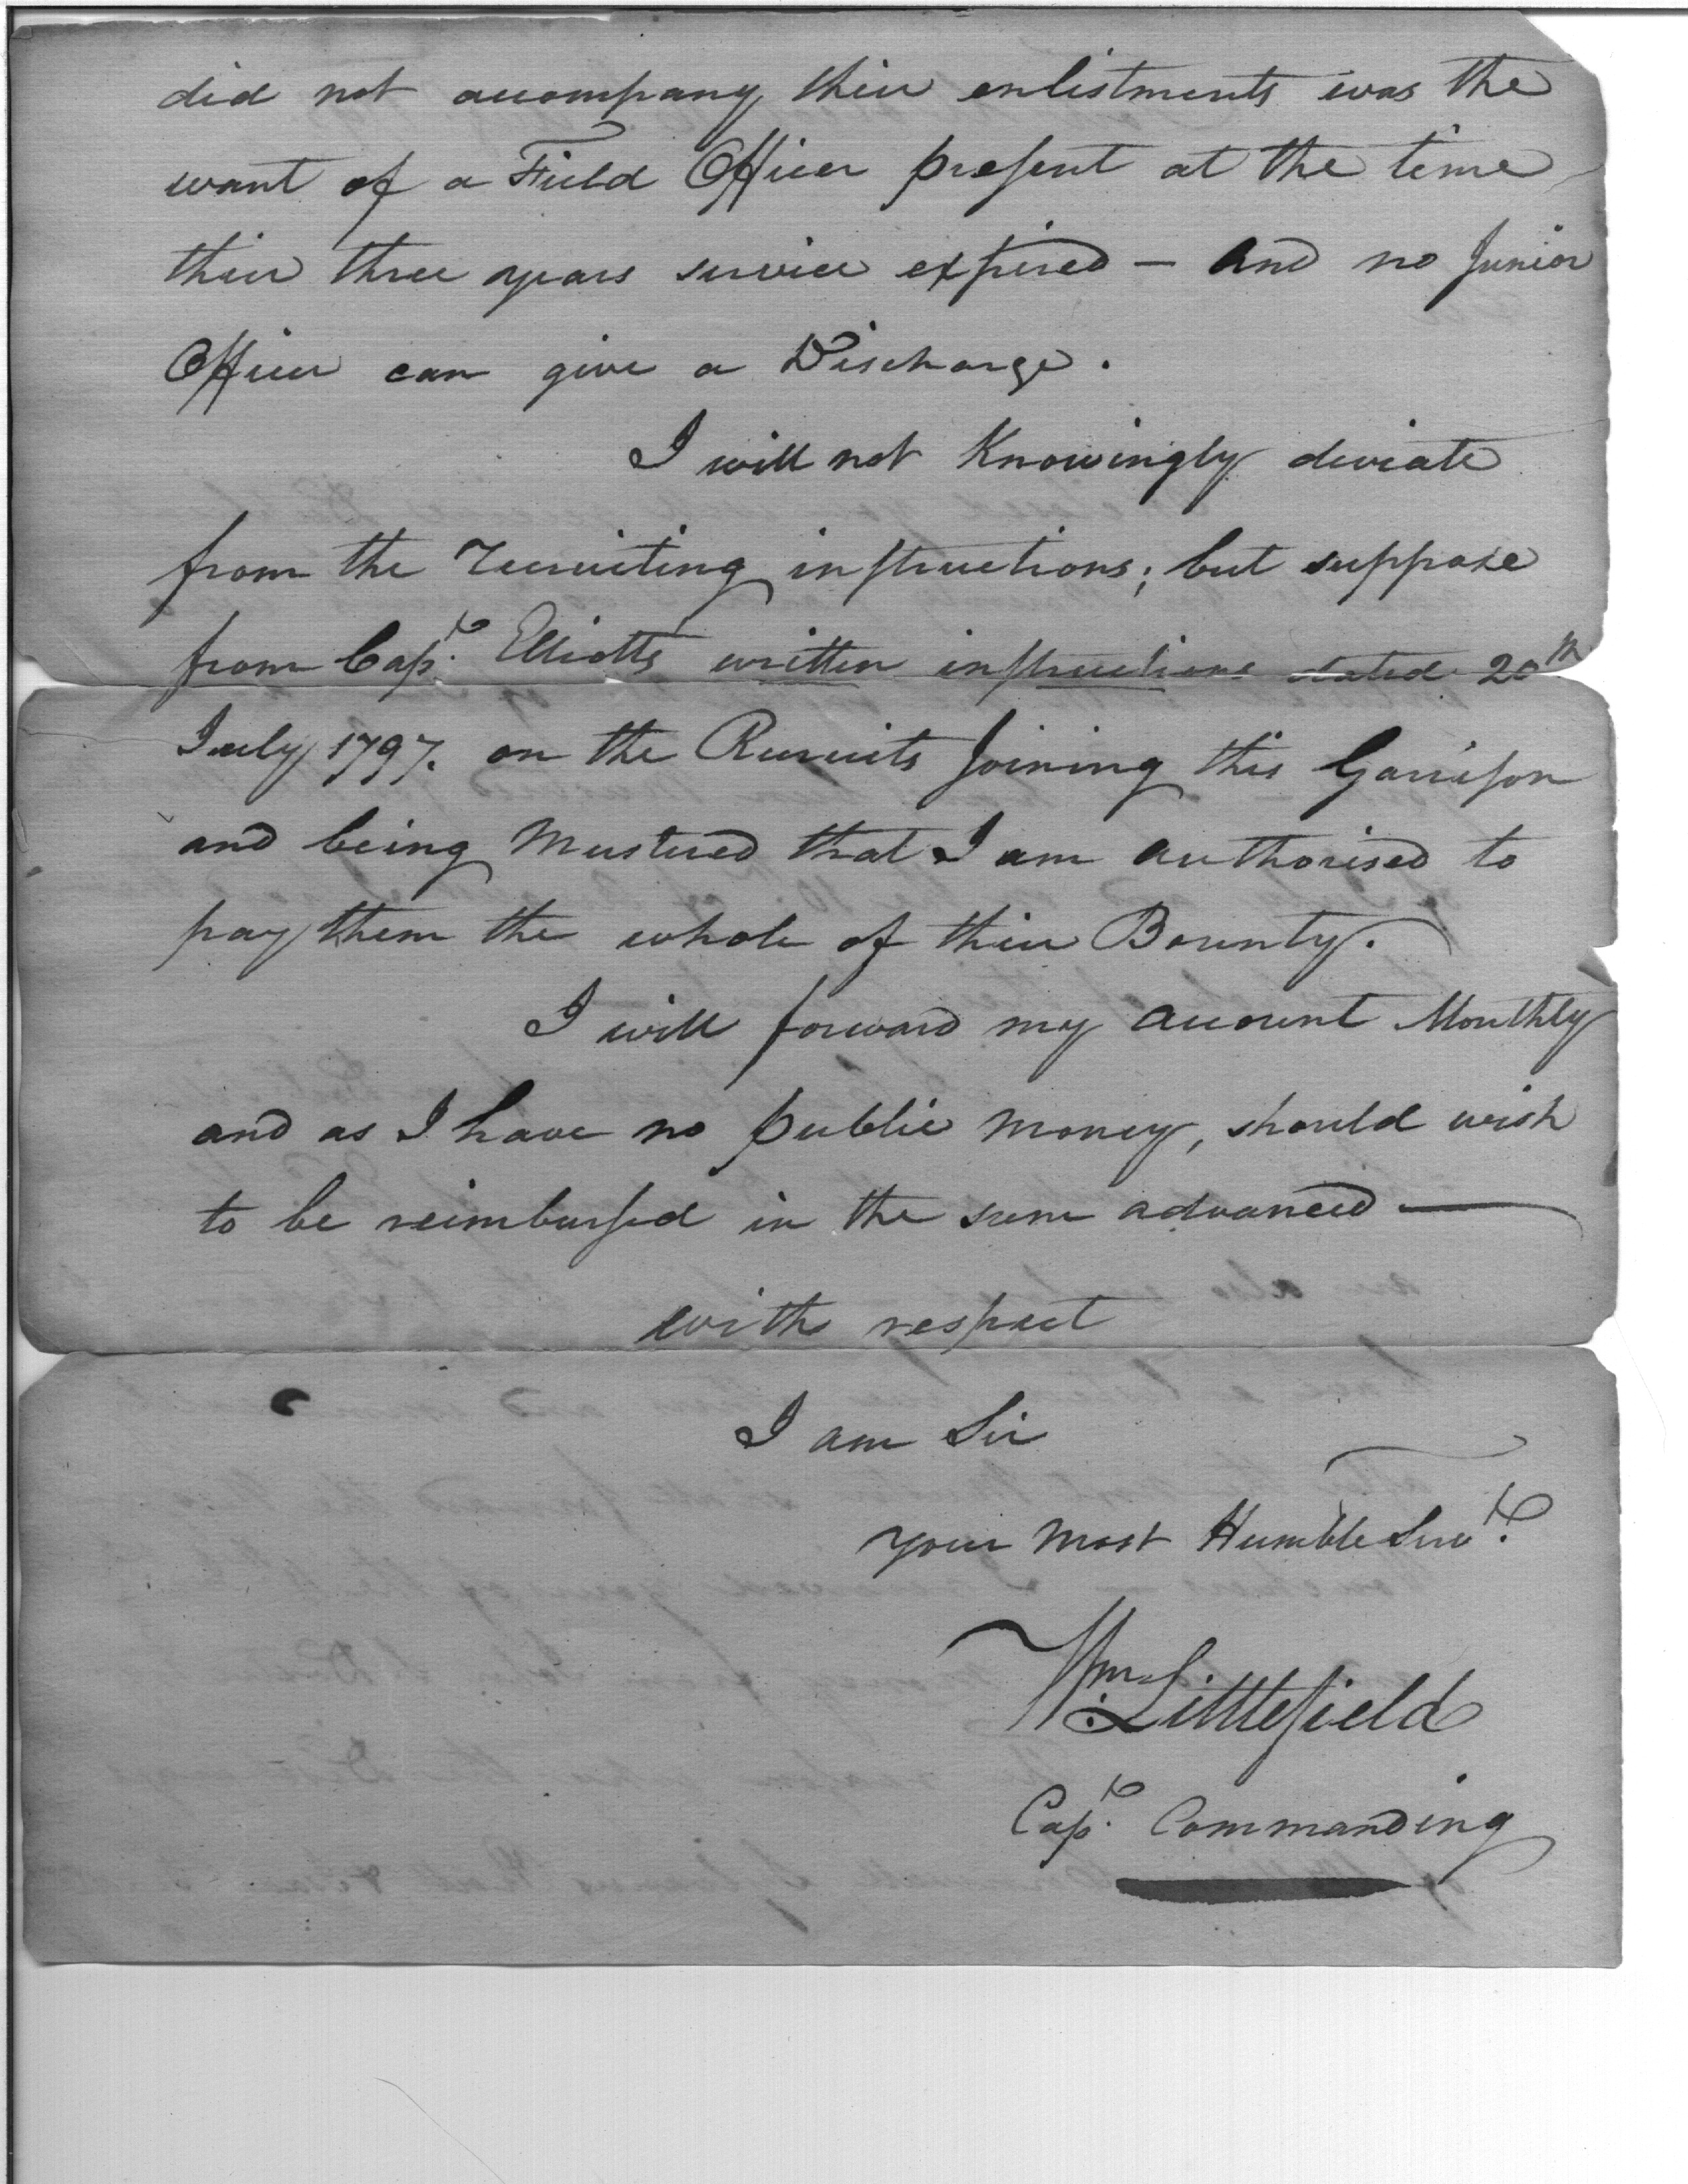 did not accompany their enlistments was the
want of a Field Officer present at the time
their three years service expired — and no Junior
Officer can give a Discharge.
I will not Knowingly deviate
from the Recruiting instructions; but suppose
from Capt. Elliotts written instructions dated 20th
July 1797. on the Recruits Joining this Garrison
and being Mustered that I am authorised to
pay them the whole of their Bounty.
I will forward my account Monthly
and as I have no public money, should wish
to be reimbursed in the sum advanced —
with respect
I am Sir
your most Humble Servt.
Wm. Littlefield
Capt. Commanding